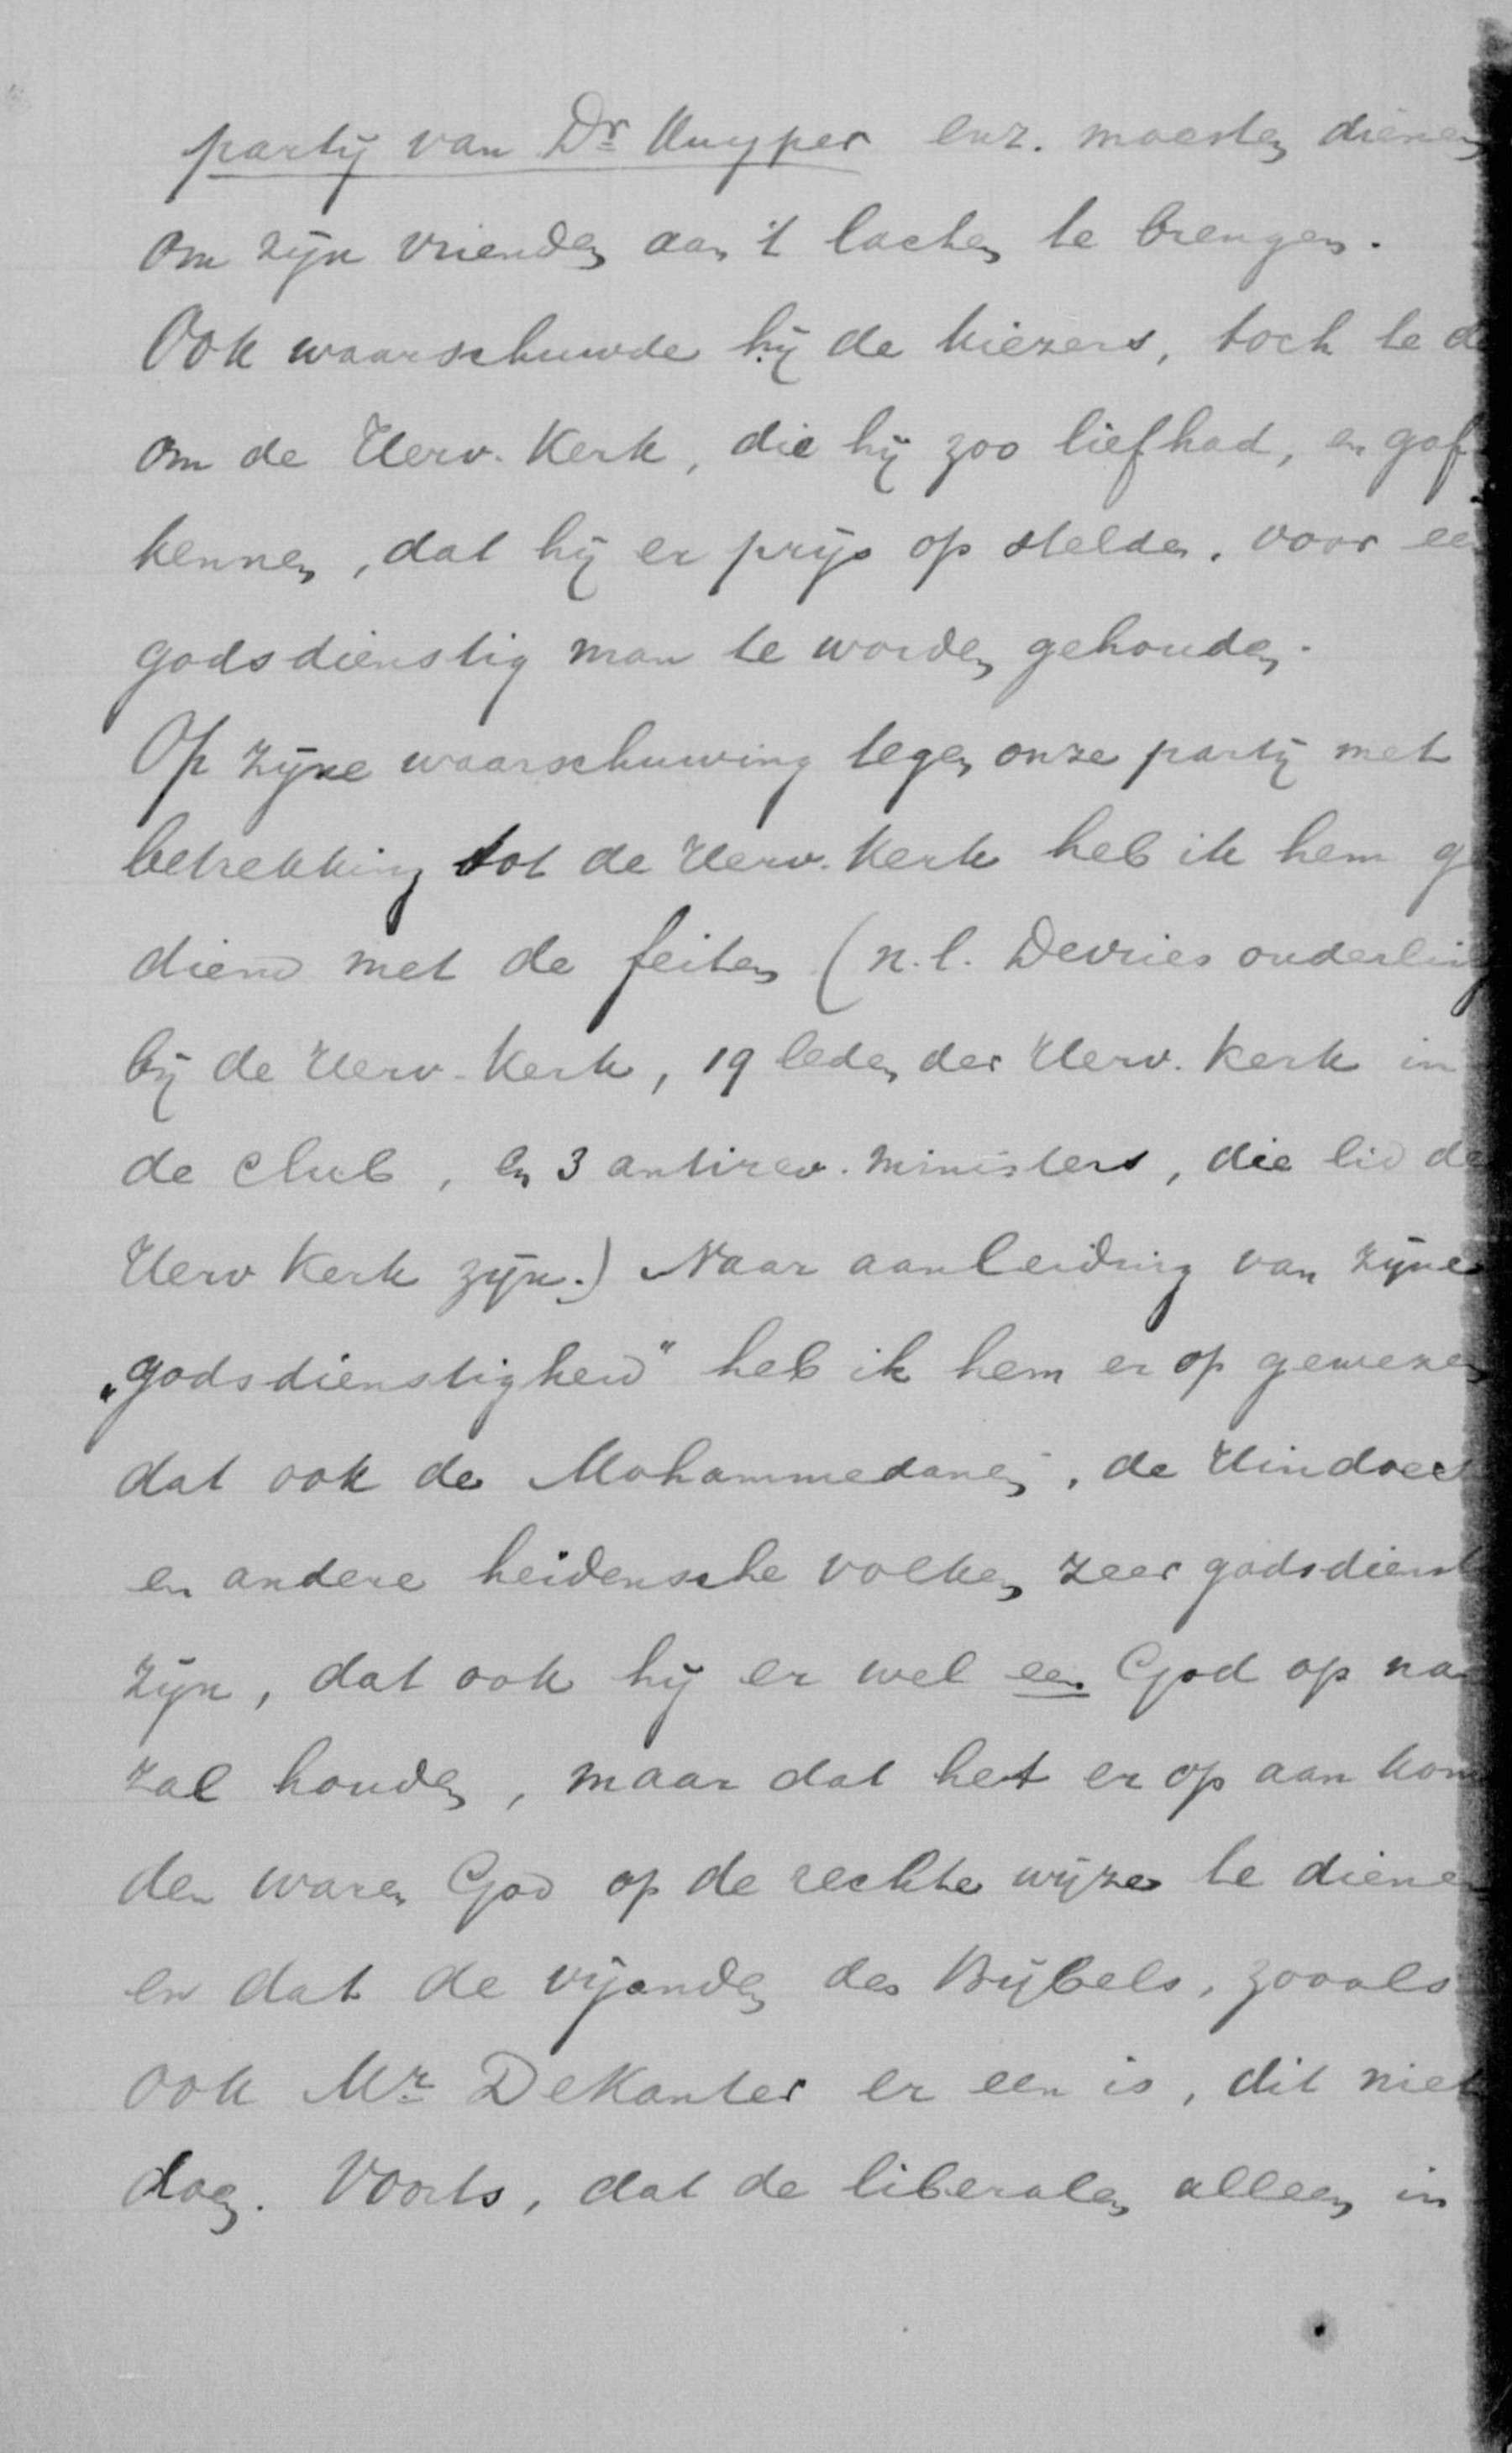 partij van Dr Kuyper enz. moesten dienen
om zijn vrienden aan 't lachen te brengen.
Ook waarschuwde hij de kiezers, toch te d
om de Herv. Kerk, die hij zoo liefhad, en gaf
kennen, dat hij er prijs op stelde, voor een
godsdienstig man te worden gehouden.
Op zijne waarschuwing tegen onze partij met
betrekking tot de Herv. Kerk heb ik hem ge
diend met de feiten (n.l. Devries ouderling
bij de Herv. Kerk, 19 leden der Herv. Kerk in
de club, en 3 antirev. ministers, die lid de
Herv Kerk zijn.) Naar aanleiding van zijne
„godsdienstigheid" heb ik hem er op gewezen
dat ook de Mohammedanen, de Hindoes
en andere heidensche volken zeer godsdienst
zijn, dat ook hij er wel een God op na
zal houden, maar dat het er op aan kom
den waren God op de rechte wijze te dienen
en dat de vijanden des Bijbels, zooals
ook Mr DeKanter er een is, dit niet
doen. Voorts, dat de liberalen alleen in